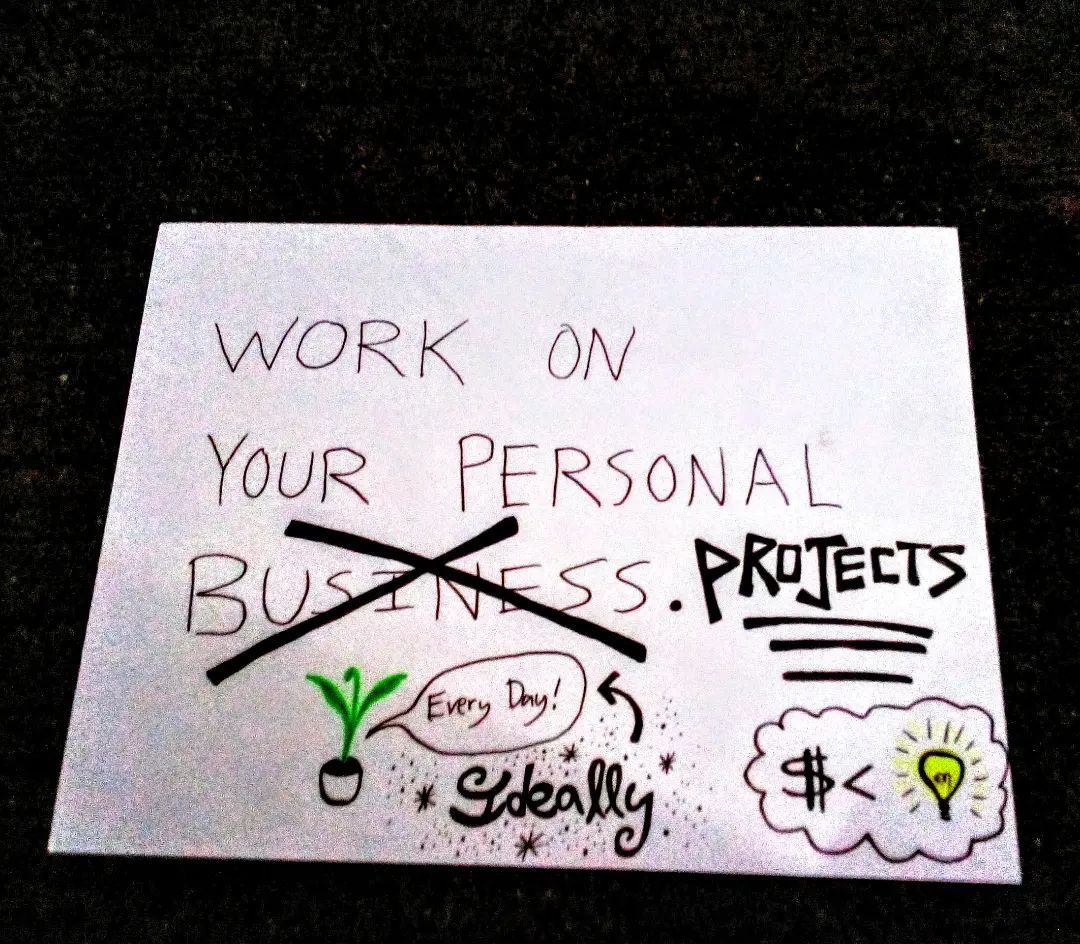 WORK ON
YOUR PERSONAL
BUSINESS. PROJECTS
Every Day!
Ideally.
$ <